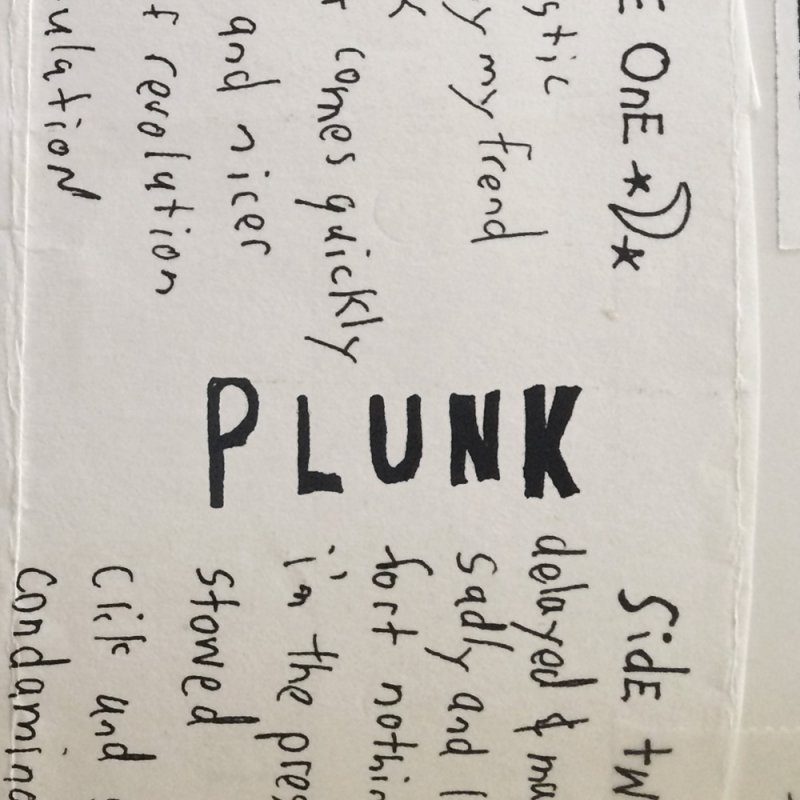 E OnE
stic
y my frend
r comes quickly
and nicer
f revolution
ulatioN
PLUNK
SidE tw
delayed & ma
sadly and l
fort nothin
i'm the pres
stowed
Click and
Condamin